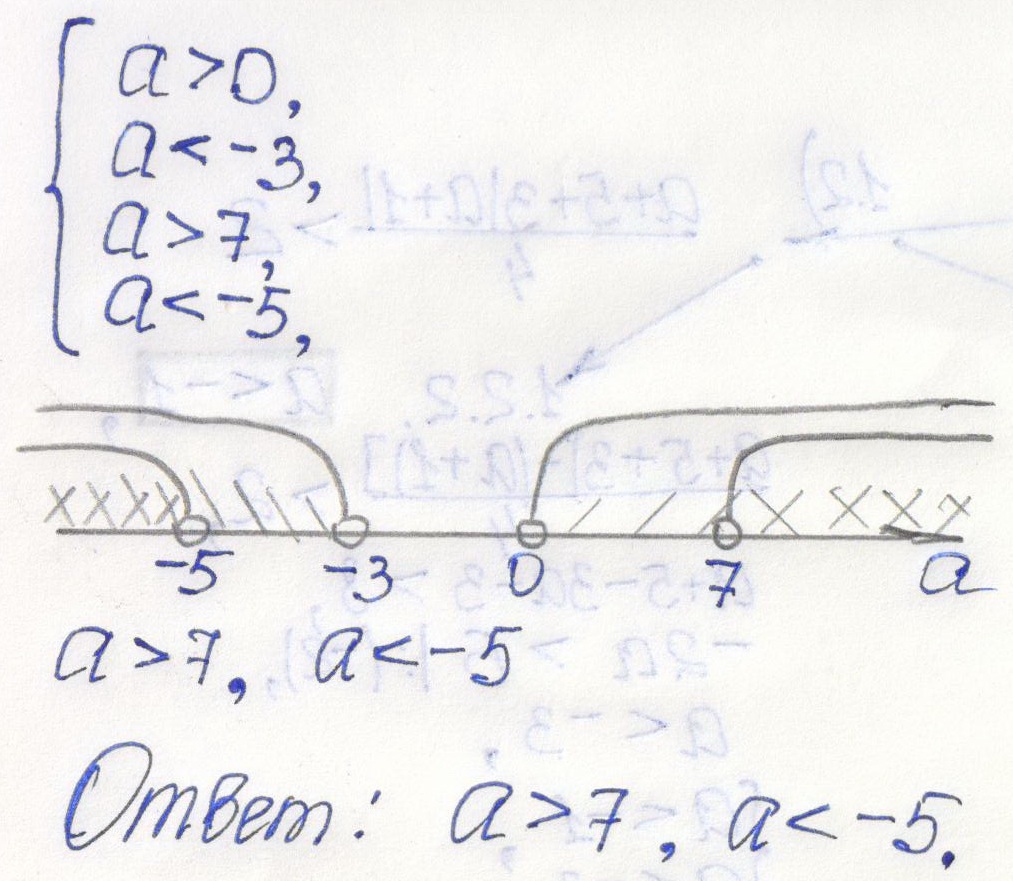 a>0,
a<-3,
a>7,
a<-5,
-5 -3 0 7 a
a>7, a<-5
Ответ: a>7, a<-5.